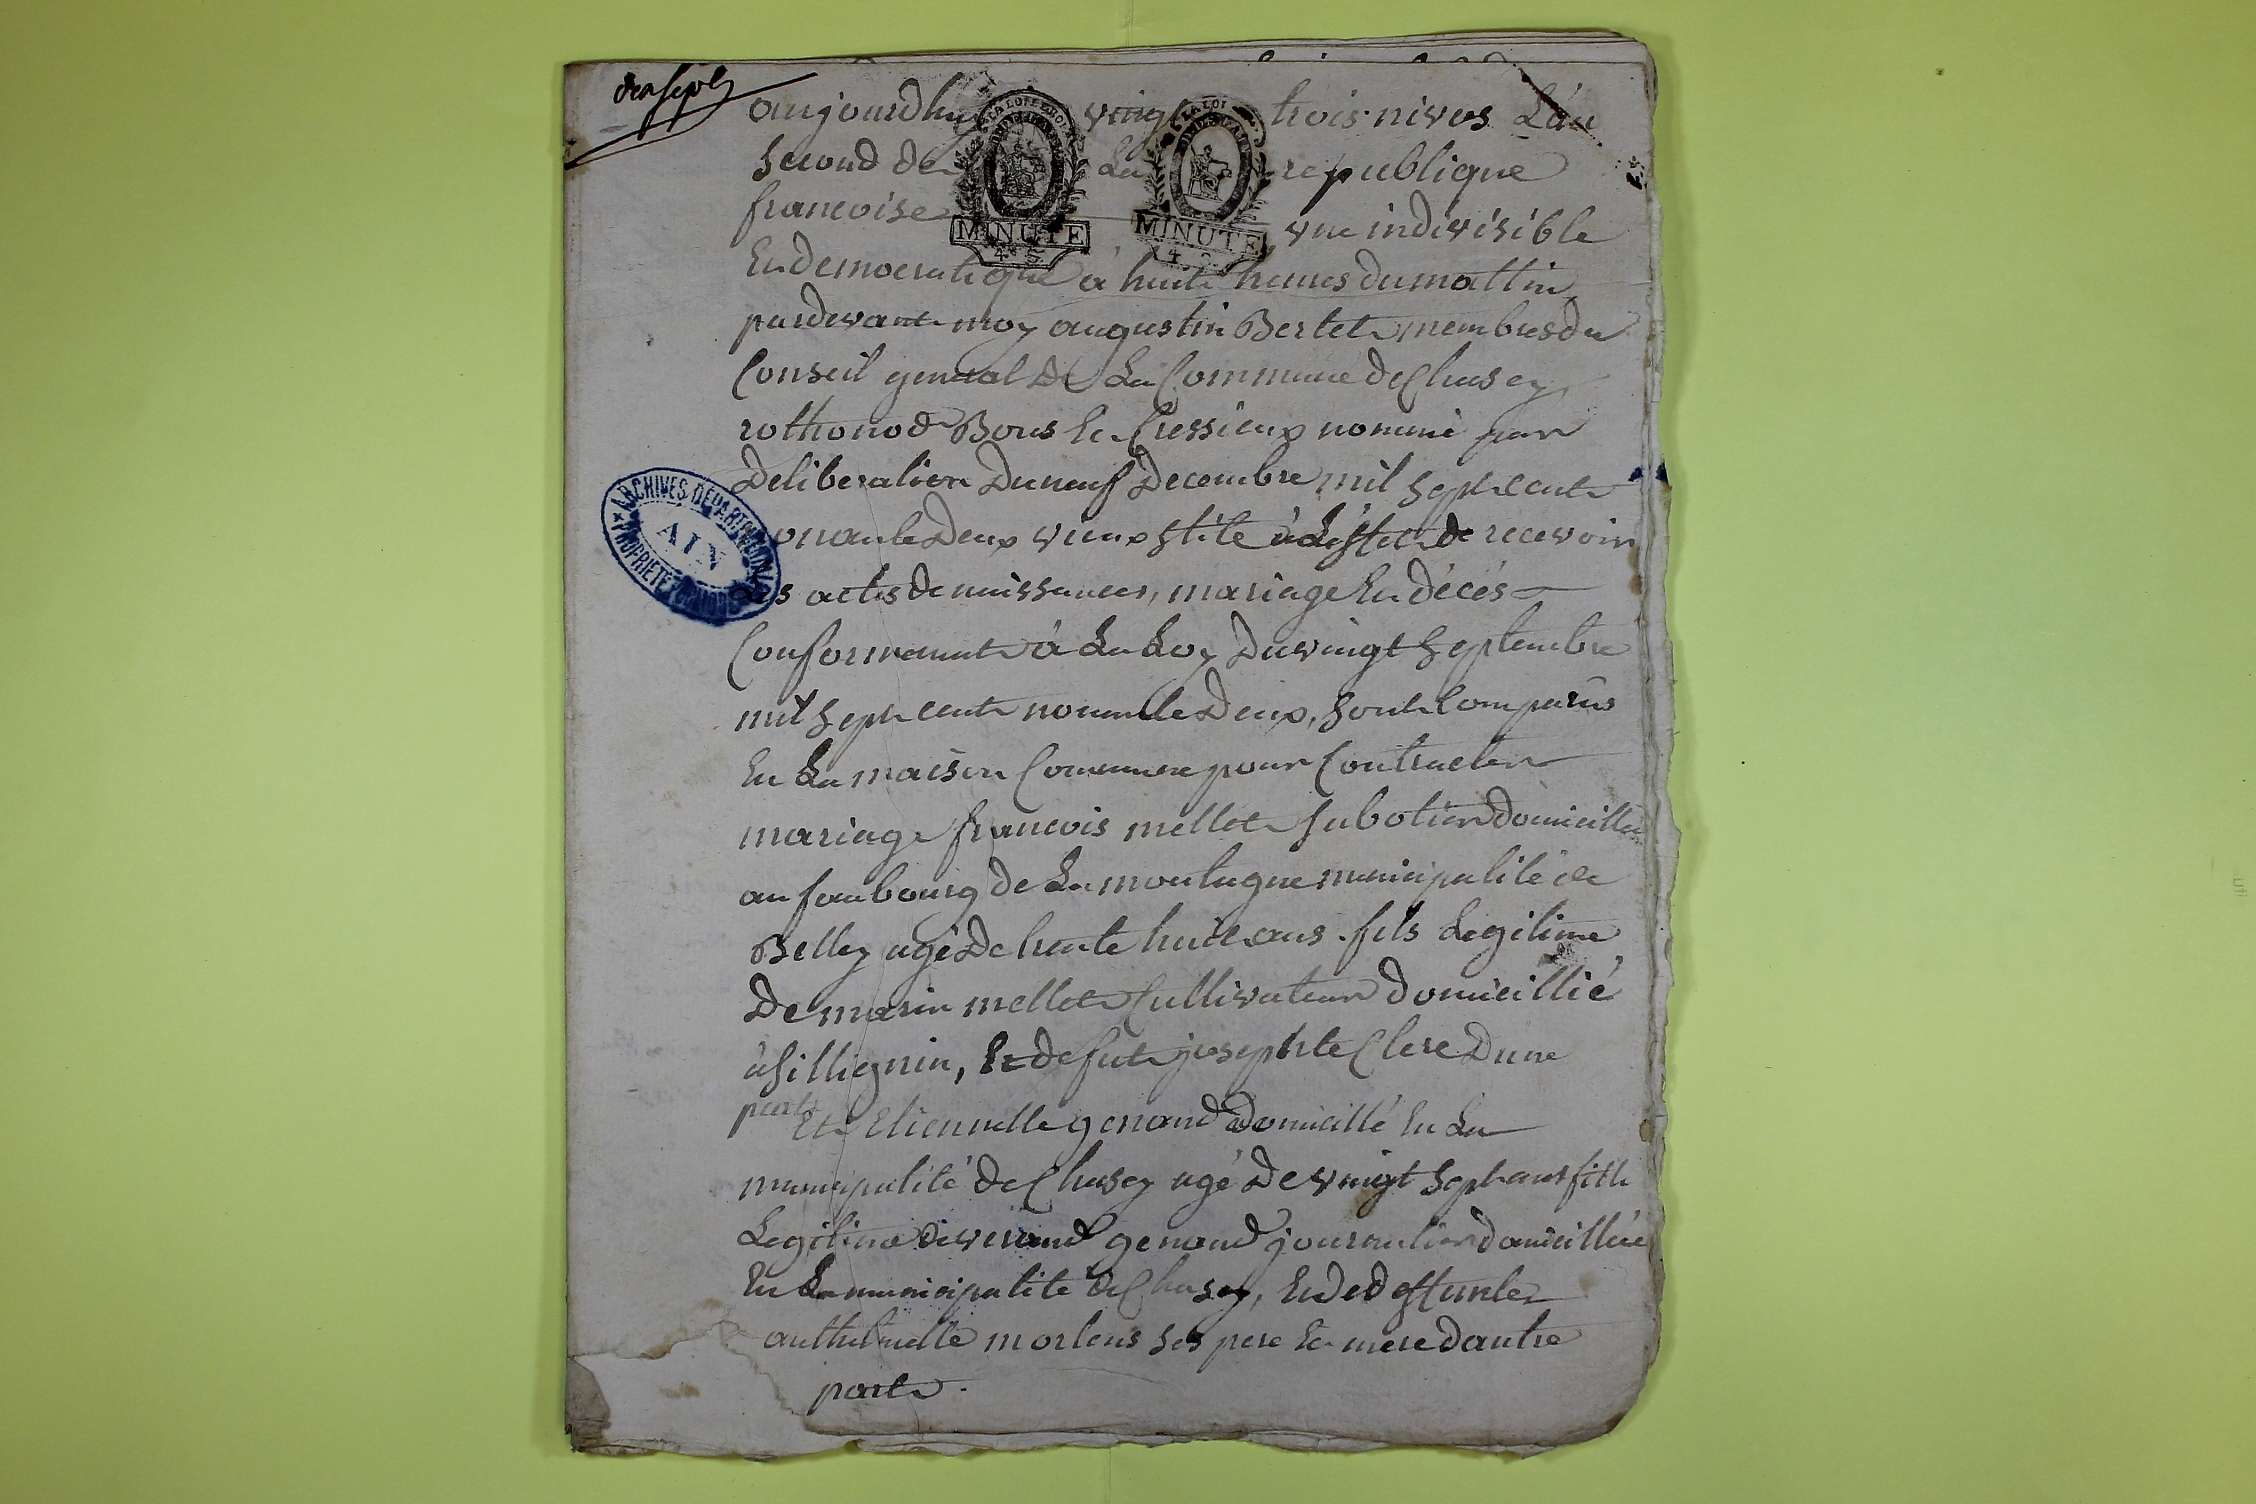 aujourdhuy vingt trois nivos L'an
second de La republique
francoise une indivisible
Et democratique à huit heures du mattin
pardevant moy augustin Bertet membres du
Conseil general de La Commune de Chasey
rothonod Bons Et Cressieux nommé par
Deliberation du neuf Decembre mil sept cent
nonante Deux vieux stile à L'effet de recevoir
Les actes de naissances, mariage Et décés
Conformement à La Loy du vingt septembre
mil sept cent nonante Deux, sont Comparus
En La maison Commune pour Contracter
mariage francois mellet sabotier Domicillié
au faubourg de La montagne municipalité de
Belley agé De trente huit ans fils Legitime
De marin mellet Cultivateur domicillié
à sillignin, Et de fut josephte Clerc Dune
part
Et Etiennette genand Domicillé En La
municipalité de Chasey agé De vingt sept ans fille
Legitime de genand journalier domicillié
En La municipalité de Chasey, Et de deffunte
morlens ses pere Et mere dautre
parte.
LA LOI
MINUTE
4 S
LA LOI
MINUTE
4
ARCHIVES DEPARTEMENTALES
AIN
PROPRIÉTÉ PUBLIQUE